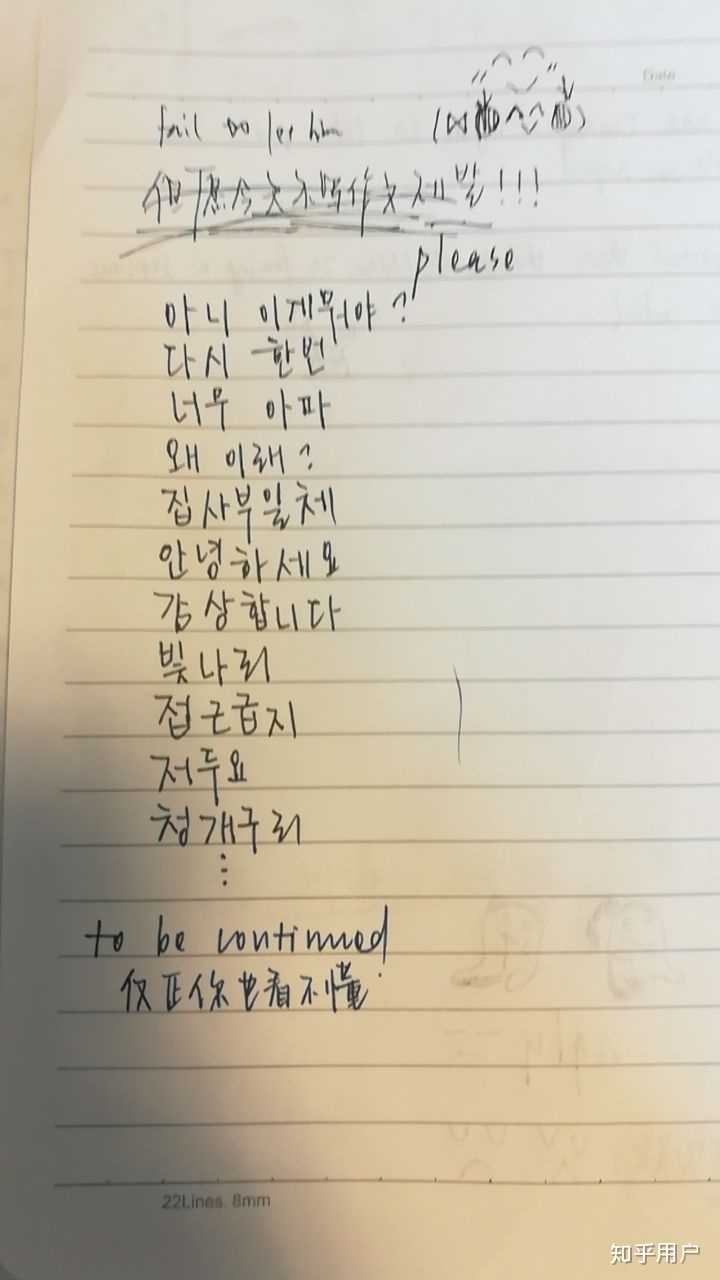 但愿今天不写作文제발!!!
please
아니 이게뭐야?
다시 한번
너무 아파
왜 이래?
집사부일체
안녕하세요
감상합니다
빛나리
접근급지
저두요
청개구리
⋮
to be continued
反正你也看不懂
22Lines. 8mm
知乎用户